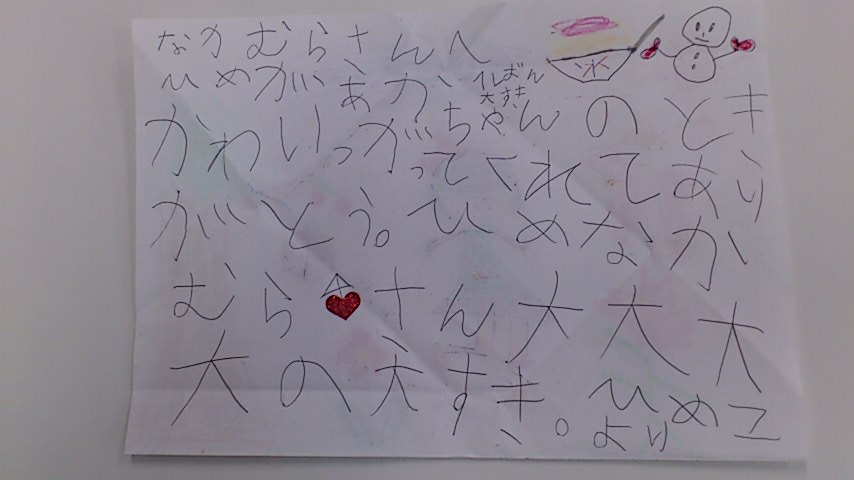 なかむらさんへ
氷
いちばん
大すき
ひめがあかちゃんのとき
かわいっがってくれてあり
がとう。ひめなか
むらさん大大大
大の大すき。ひめこ
より